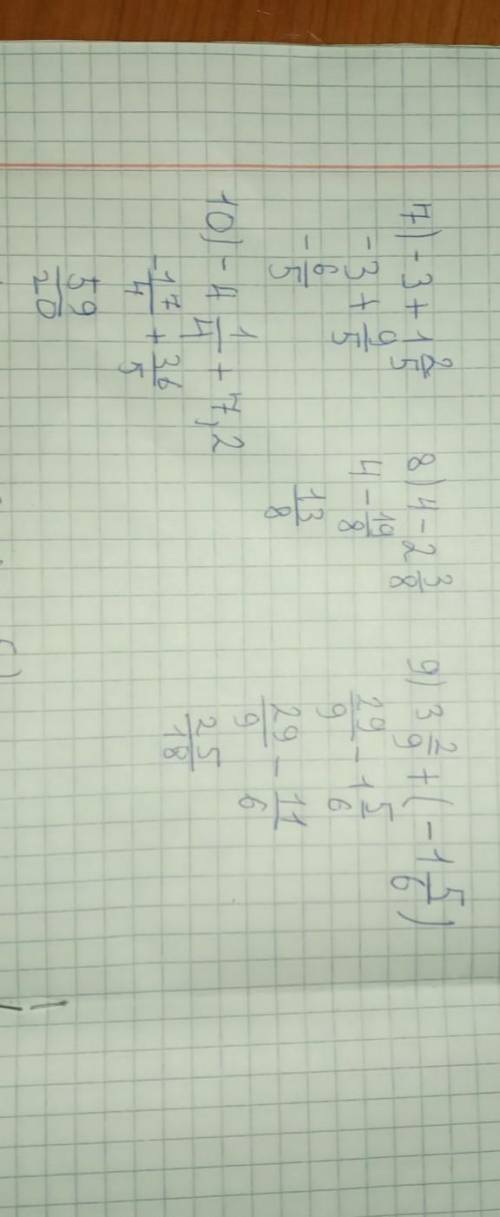 7) -3 + 1 2/5
-3 + 9/5
- 6/5
8) 4 - 2 3/8
4 - 19/8
13/8
9) 3 2/9 + (-1 5/6)
29/9 - 1 5/6
29/9 - 11/6
25/18
10) -4 1/4 + 7,2
-17/4 + 36/5
59/20